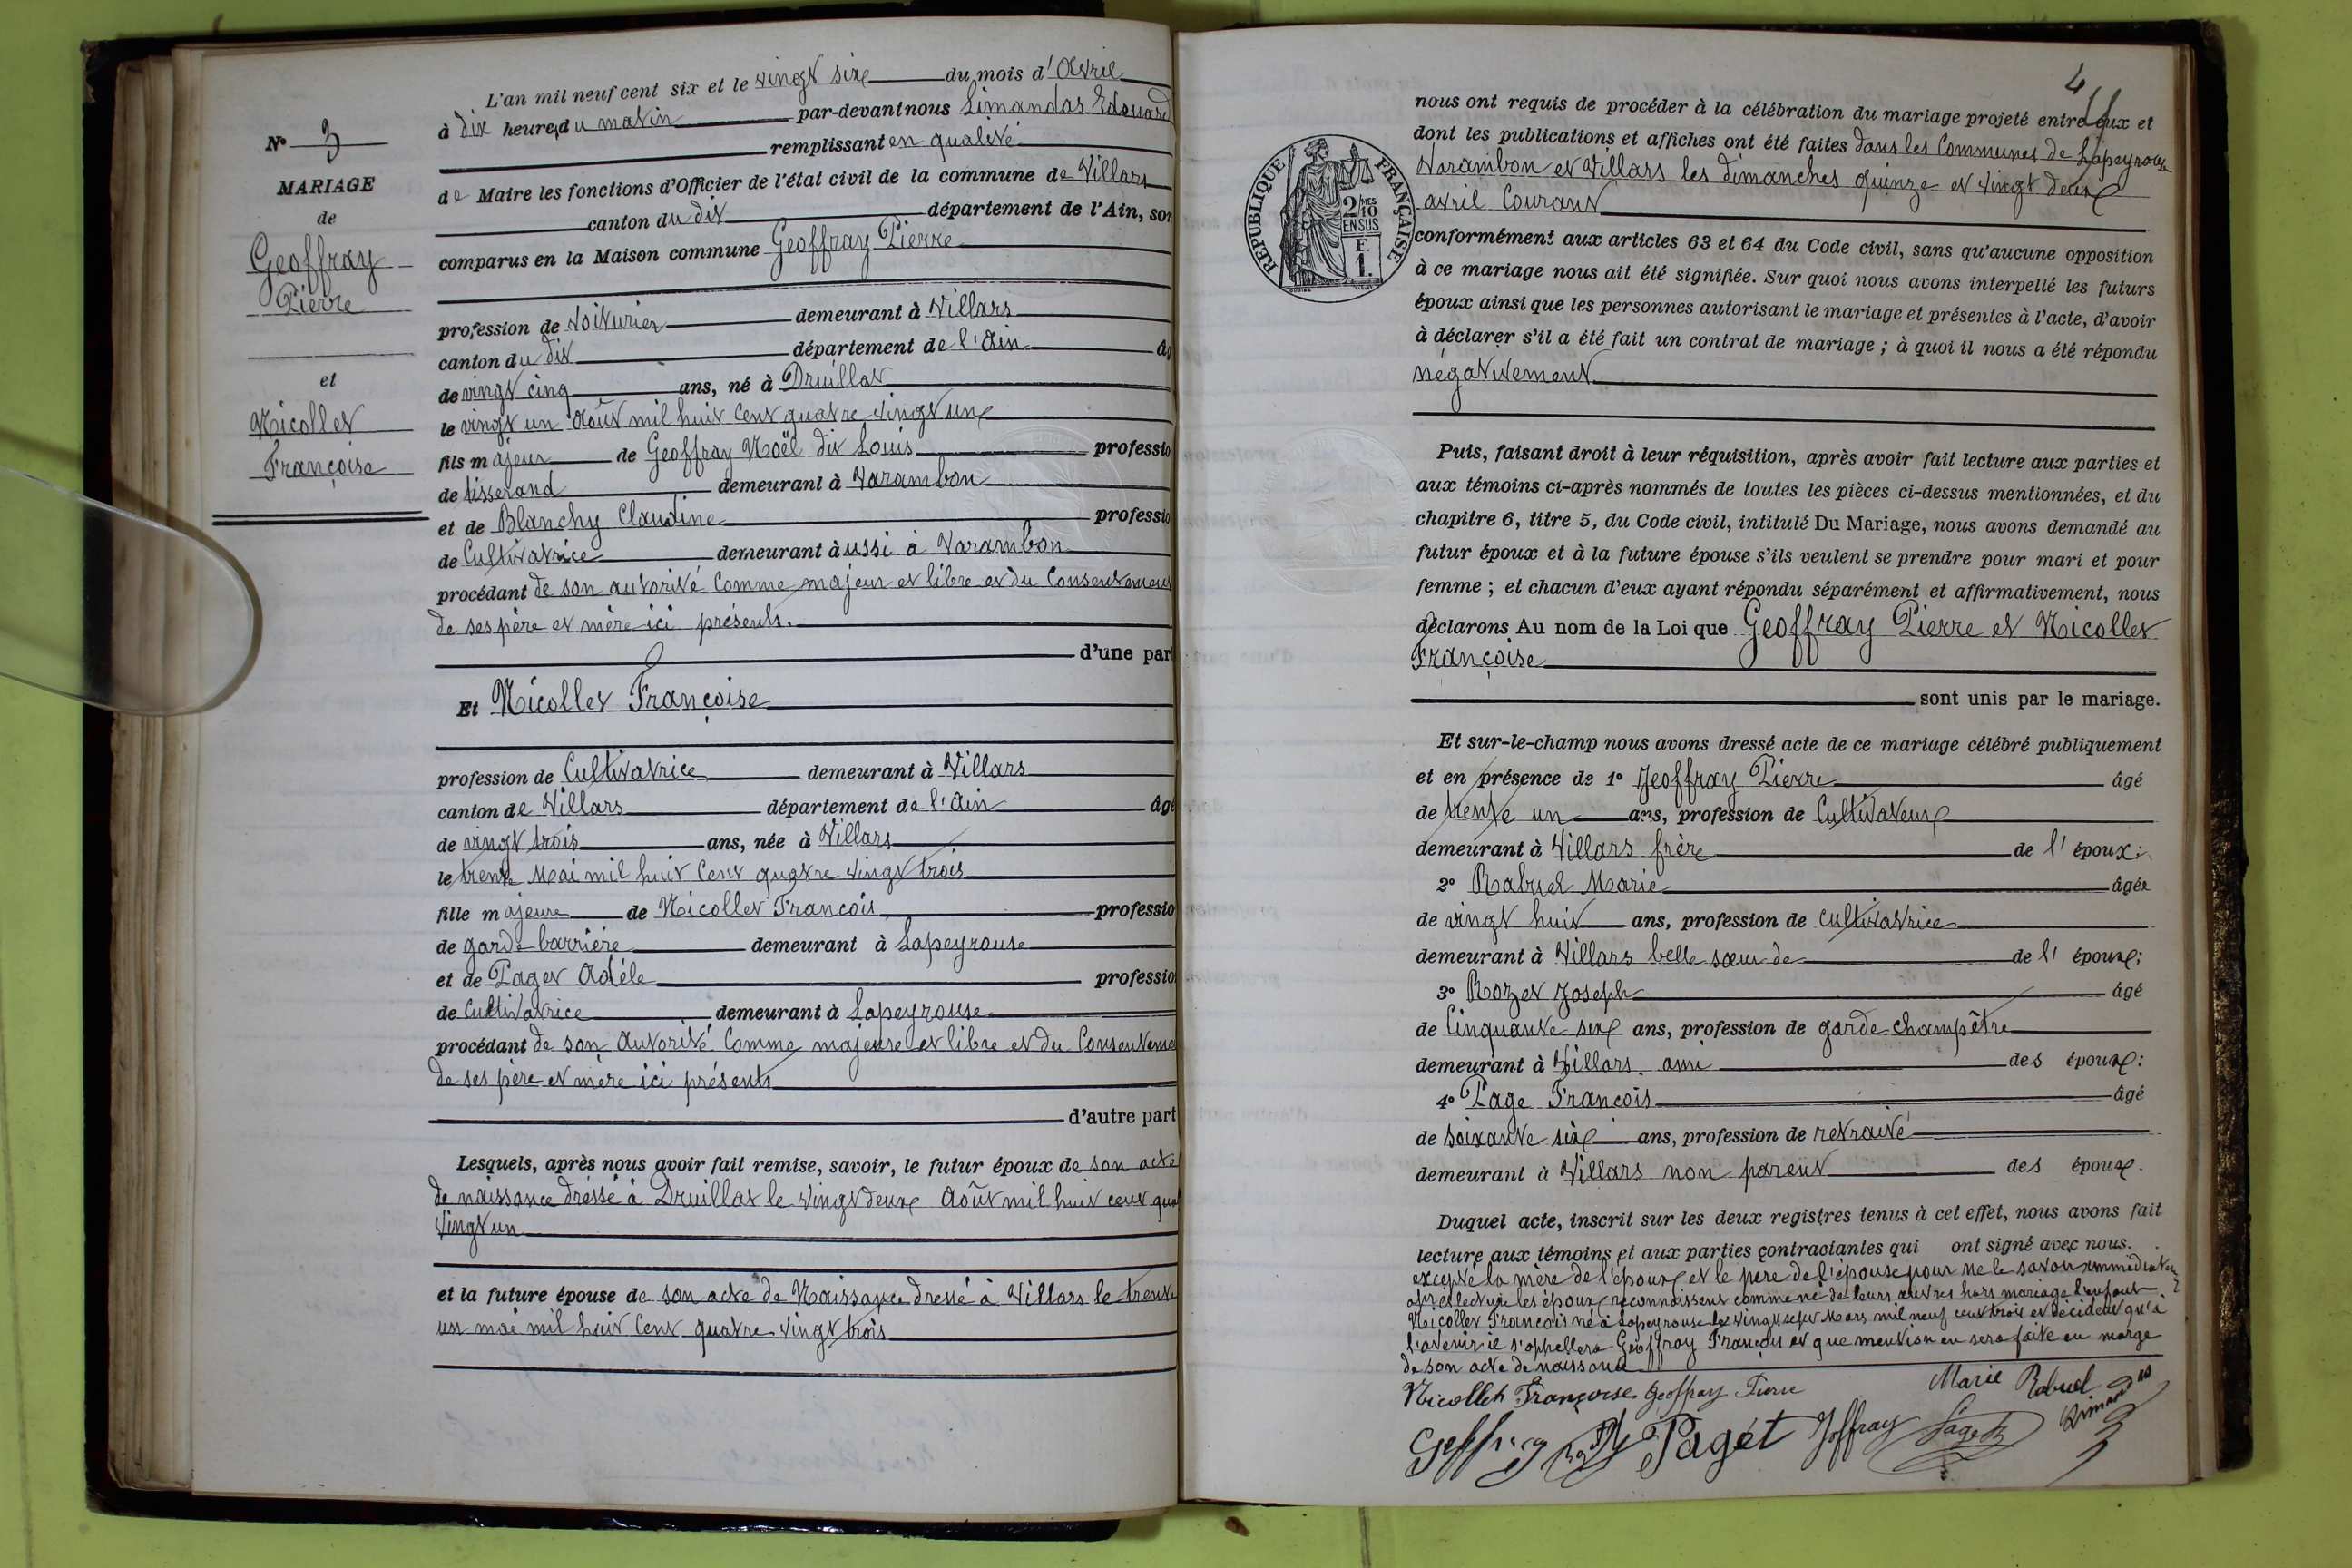 N° 3
MARIAGE
de
Geoffray
Pierre
et
Nicollet
Françoise
L'an mil neuf cent six et le vingt six du mois d'Avril
à dix heures du matin par-devant nous Limandas Edouard
remplissant en qualité
de Maire les fonctions d'Officier de l'état civil de la commune de Villars
canton du dit département de l'Ain, son
comparus en la Maison commune Geoffray Pierre
profession de voiturier demeurant à Villars
canton du dit département de l'Ain âg
de vingt cinq ans, né à Druillat
le vingt un Août mil huit cent quatre vingt un
fils majeur de Geoffray Noël dit Louis professio
de tisserand demeurant à Varambon
et de Blanchy Claudine professio
de Cultivatrice demeurant à ussi à Varambon
procédant de son autorité comme majeur et libre et du Consentement
de ses père et mère ici présents.
d'une part
Et Nicollet Françoise
profession de Cultivatrice demeurant à Villars
canton de Villars département de l'Ain âgé
de vingt trois ans, née à Villars
le trente Mai mil huit cent quatre vingt trois
fille majeure de Nicollet François professio
de garde-barrière demeurant à Lapeyrouse
et de Paget Adèle professio
de Cultivatrice demeurant à Lapeyrouse
procédant de son Autorité Comme majeure et libre et du Consenteme
de ses père et mère ici présents
d'autre part
Lesquels, après nous avoir fait remise, savoir, le futur époux de son acte
de naissance dressé à Druillat le vingt deux Août mil huit cent qua
vingt un
et la future épouse de son acte de Naissance dressé à Villars le trente
un mai mil huit cent quatre-vingt trois
4
nous ont requis de procéder à la célébration du mariage projeté entre eux et
dont les publications et affiches ont été faites dans les Communes de Lapeyrouse
Varambon et Villars les dimanches quinze et vingt deux
avril Courant
RÉPUBLIQUE FRANÇAISE
2/10 EN SUS
F. 1.
conformément aux articles 63 et 64 du Code civil, sans qu'aucune opposition
à ce mariage nous ait été signifiée. Sur quoi nous avons interpellé les futurs
époux ainsi que les personnes autorisant le mariage et présentes à l'acte, d'avoir
à déclarer s'il a été fait un contrat de mariage ; à quoi il nous a été répondu
négativement
Puis, faisant droit à leur réquisition, après avoir fait lecture aux parties et
aux témoins ci-après nommés de toutes les pièces ci-dessus mentionnées, et du
chapitre 6, titre 5, du Code civil, intitulé Du Mariage, nous avons demandé au
futur époux et à la future épouse s'ils veulent se prendre pour mari et pour
femme ; et chacun d'eux ayant répondu séparément et affirmativement, nous
déclarons Au nom de la Loi que Geoffray Pierre et Nicollet
Françoise
sont unis par le mariage.
Et sur-le-champ nous avons dressé acte de ce mariage célébré publiquement
et en présence de 1° Jeoffray Pierre âgé
de trente un ans, profession de Cultivateur
demeurant à Villars frère de l'époux;
2° Rabuel Marie âgée
de vingt huit ans, profession de cultivatrice
demeurant à Villars belle sœur de de l'époux;
3° Rozet Joseph âgé
de Cinquante six ans, profession de garde-champêtre
demeurant à Villars. ami des époux:
4° Page François âgé
de soixante six ans, profession de retraité
demeurant à Villars non parent des époux.
Duquel acte, inscrit sur les deux registres tenus à cet effet, nous avons fait
lecture aux témoins et aux parties contractantes qui ont signé avec nous.
excepté la mère de l'époux et le père de l'épouse pour ne le savoir immédiatem
après lecture les époux reconnaissent comme né de leurs œuvres hors mariage l'enfant
Nicollet François né à Lapeyrouse le vingt sept Mars mil neuf cent trois et décident qu'à
l'avenir il s'appellera Geoffray François et que mention en sera faite en marge
de son acte de naissance
Nicollet Françoise Geoffray Pierre Marie Rabuel
Limandas
Geffray Paget Joffray Page